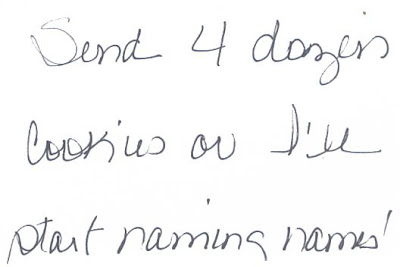 Send 4 dozens
Cookies or I'll
start naming names!